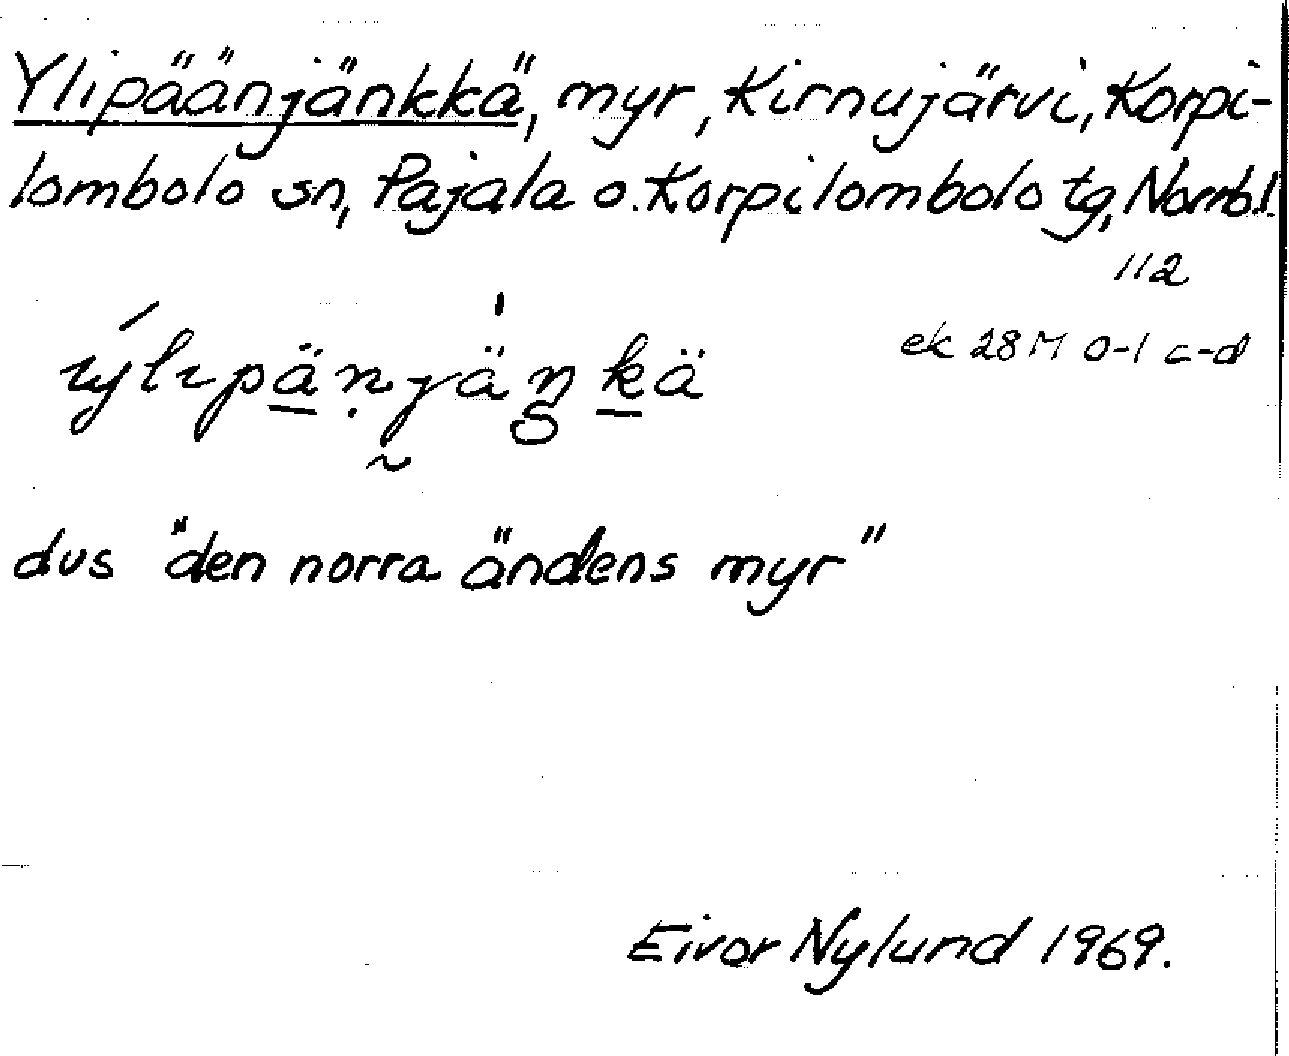 Ylipäänjänkkä, myr, Kirnujärvi, Korpi-
lombolo sn, Pajala o. Korpilombolo tg, Norrb.l.
112
ek 28 M 0-1 c-d
dvs "den norra ändens myr"
Eivor Nylund 1969.